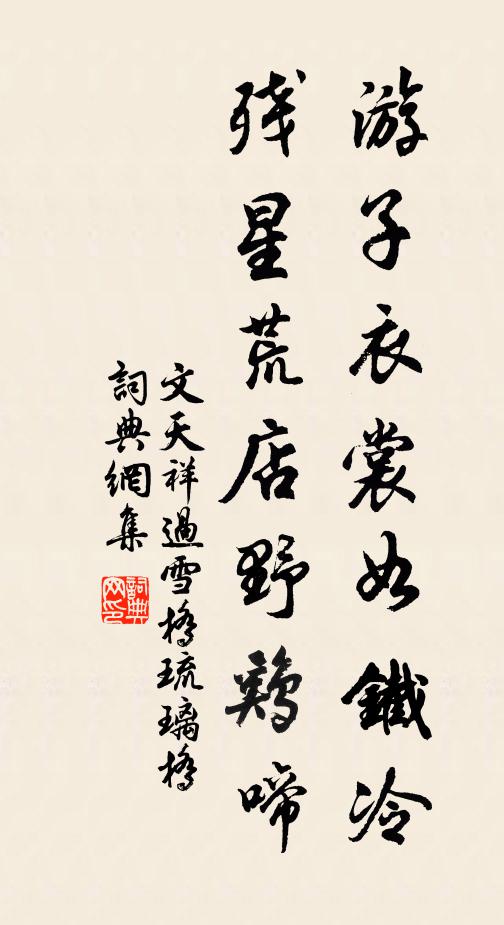 游子衣裳如鐵冷
殘星荒店野鷄啼
文天祥過雪橋琉璃橋
詞典網集
詞典網印